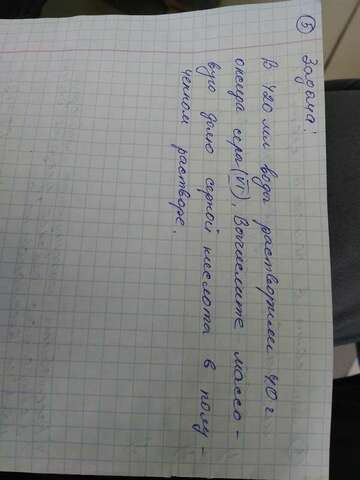 5
Задача:
В 420 мл воды растворили 40 г
оксида серы (VI). Вычислите массо-
вую долю серной кислоты в полу-
ченном растворе.